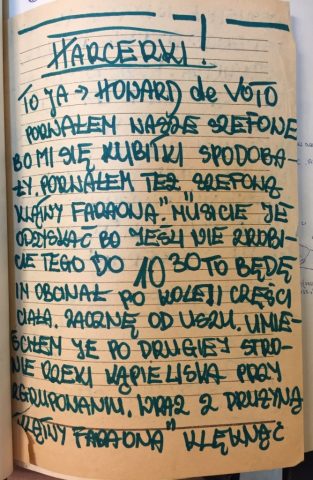 HARCERKI!
TO JA → HOWARD de VOTO
PORWAŁEM NASZE SZEFONE
BO MI SIĘ KUBITKI SPODOBA-
ŁY. PORWAŁEM TEŻ SZEFONĄ
"KRAINY FARAONA". MUSICIE JE
ODZYSKAĆ BO JEŚLI NIE ZROBI-
CIE TEGO DO 10 30 TO BĘDĘ
IM OBCINAŁ PO KOLEJI CZĘŚCI
CIAŁA. ZACZNĘ OD USZU. UMIE-
ŚCIŁEM JE PO DRUGIEJ STRO-
NIE RZEKI KĄPIELISKA PRZY
ZGRUPOWANIU. WRAZ Z DRUŻYNĄ
"KRAINY FARAONA" KLĘKNĄĆ